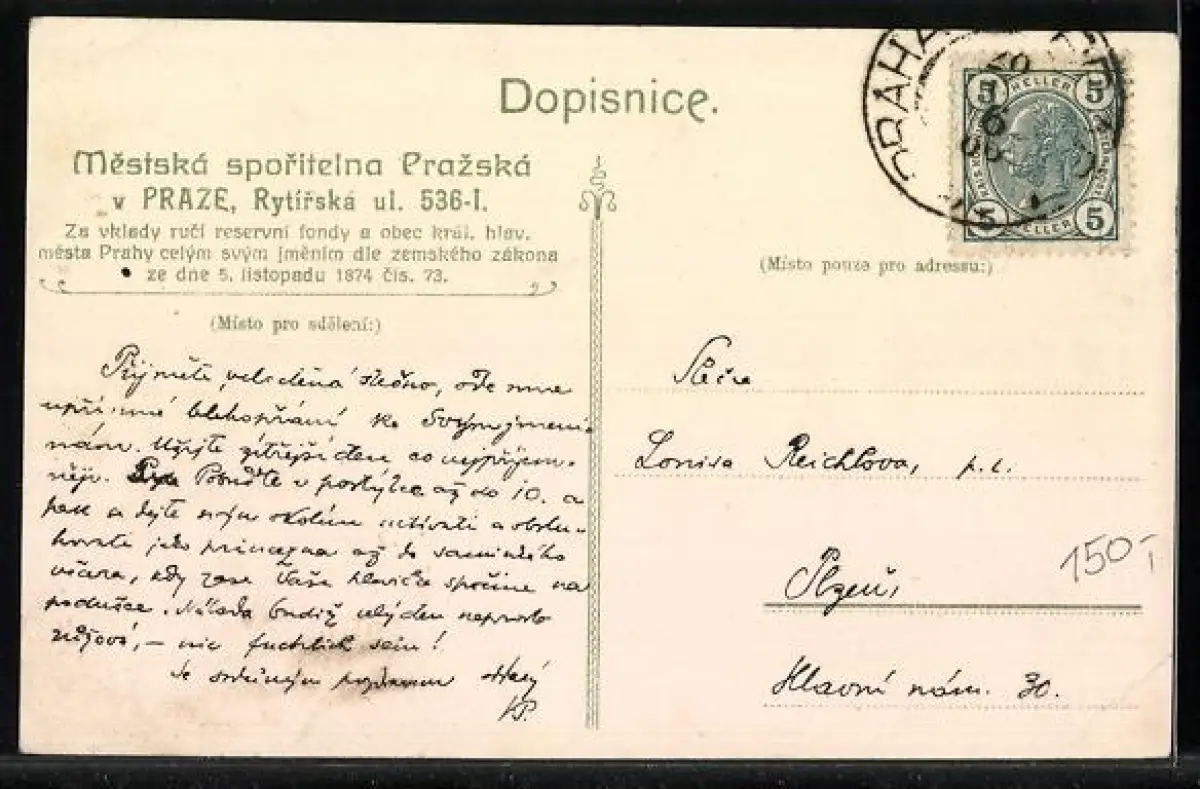 Dopisnice.
Městská spořitelna Pražská
v PRAZE, Rytířská ul. 536-I.
Za vklady ručí reservní fondy a obec král. hlav.
města Prahy celým svým jměním dle zemského zákona
ze dne 5. listopadu 1874 čís. 73.
(Místo pro sdělení:)
Přijměte, velectěná slečno, ode mne
upřímné blahopřání ke Svým jmeni-
nám. Užijte zítřejší den co nejpříjem-
něji. Pobuďte v postýlce až do 10. a
pak a dejte svým okolím uctívati a obslu-
hovati jako princezna až do samotného
večera, kdy zase Vaše hlavička spočine na
podušce. Nálada budiž celý den naprosto
růžová, – nic fuchtich sein!
Se srdečným pozdravem
PRAHA
5 HELLER 5
5 HELLER 5
(Místo pouze pro adressu:)
Slečna
Louisa Reichlova, p. t.
Plzeň,
Hlavní nám. 30.
150,-